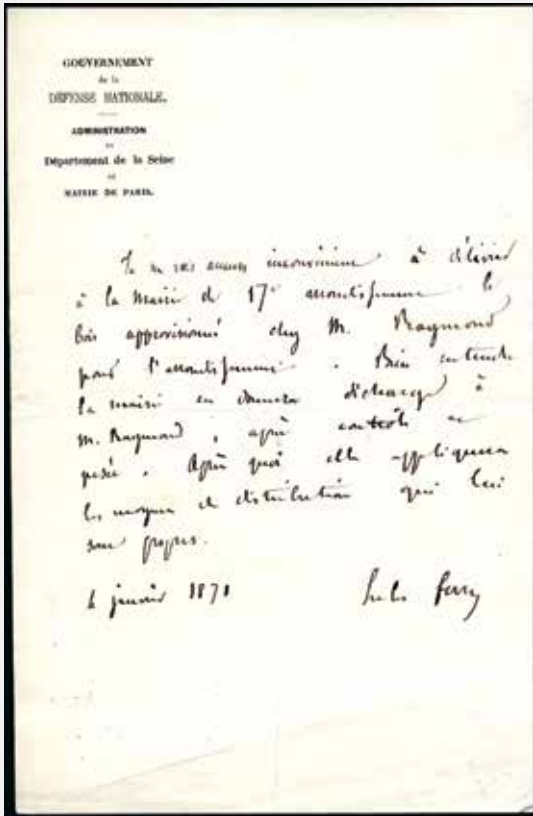 GOUVERNEMENT
de la
DÉFENSE NATIONALE.
ADMINISTRATION
DU
Département de la Seine
ET
MAIRIE DE PARIS.
Je ne vois aucun inconvénient à délivrer
à la Mairie du 17e arrondissement le
bois approvisionné chez M. Raymond
pour l'arrondissement. Bien entendu
la mairie en donnera décharge à
M. Raymond, après contrôle et
pesée. Après quoi elle appliquera
les moyens de distribution qui lui
sont propres.
4 janvier 1871
Jules Ferry